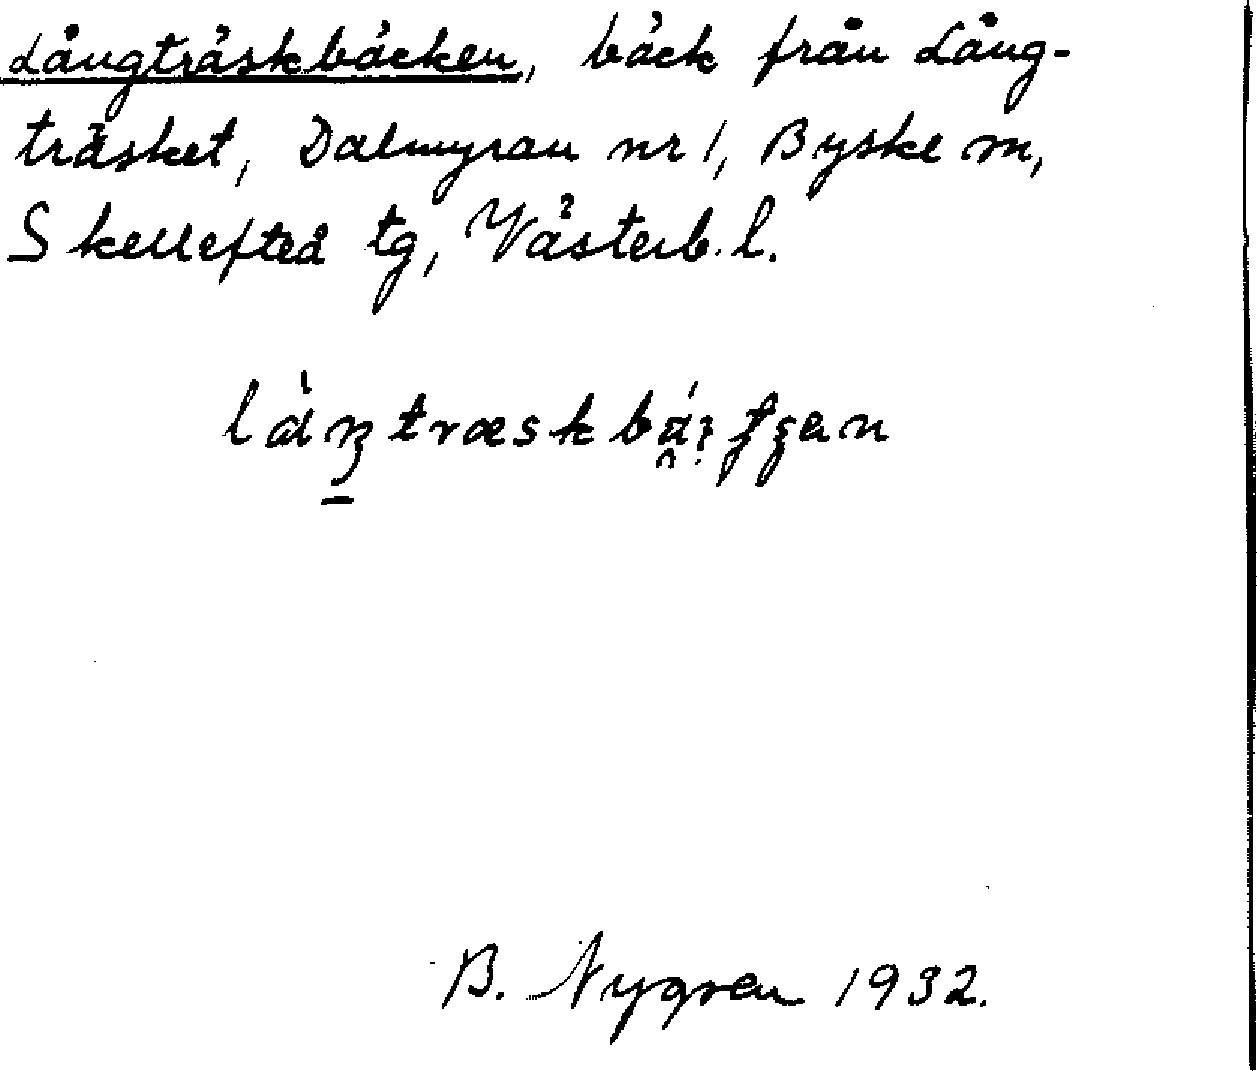 Långträskbäcken, bäck från Lång-
träsket, Dalmyran nr 1, Byske sn,
Skellefteå tg, Västerb. l.
B. Nygren 1932.